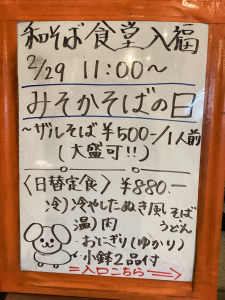 和そば食堂入福
2/29 11:00〜
みそかそばの日
〜ザルそば¥500-/1人前
(大盛可!!)
〈日替定食〉¥880.-
冷)冷やしたぬき風そば
うどん
温)肉
・おにぎり(ゆかり)
・小鉢2品付
=入口こちら⇒